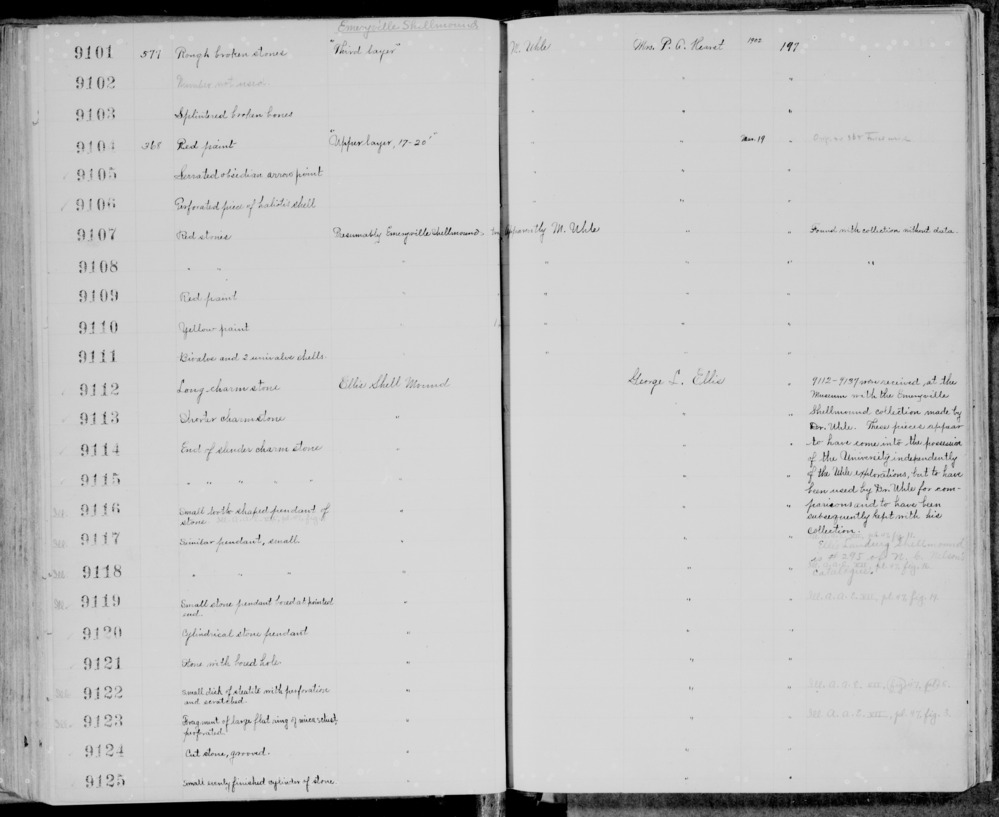 Emeryville Shellmound
9101 577 Rough broken stones "Third layer" M. Uhle Mrs. P. A. Hearst 1902 197
9102 Number not used " " "
9103 Splintered broken bones " " "
9104 368 Red paint "Upper layer, 17-20'" " " Jan. 19 "
9105 Serrated obsidian arrow point " " "
9106 Perforated piece of haliotis shell " " "
9107 Red stones Presumably Emeryville Shellmound. Apparently M. Uhle " " Found with collection without data.
9108 " " " " " " "
9109 Red paint " " " "
9110 Yellow paint " " " "
9111 Bivalve and 2 univalve shells " " " "
9112 Long charm stone Ellis Shell Mound George L. Ellis " 9112-9137 were received at the
Museum with the Emeryville
9113 Shorter charmstone " " " Shellmound collection made by
Dr. Uhle. These pieces appear
9114 End of slender charm stone " " " to have come into the possession
of the University independently
9115 " " " " " " " of the Uhle explorations, but to have
been used by Dr. Uhle for com-
9116 Small tooth shaped pendant of " " " parisons and to have been
stone subsequently kept with his
collection.
9117 Similar pendant, small " " "
9118 " " " " " "
9119 Small stone pendant bored at pointed " " "
end.
9120 Cylindrical stone pendant " " "
9121 Stone with bored hole " " "
9122 Small disk of steatite with perforation " " "
and scratched.
9123 Fragment of large flat ring of mica schist, " " "
perforated.
9124 Cut stone, grooved. " " "
9125 Small evenly finished cylinder of stone " " "